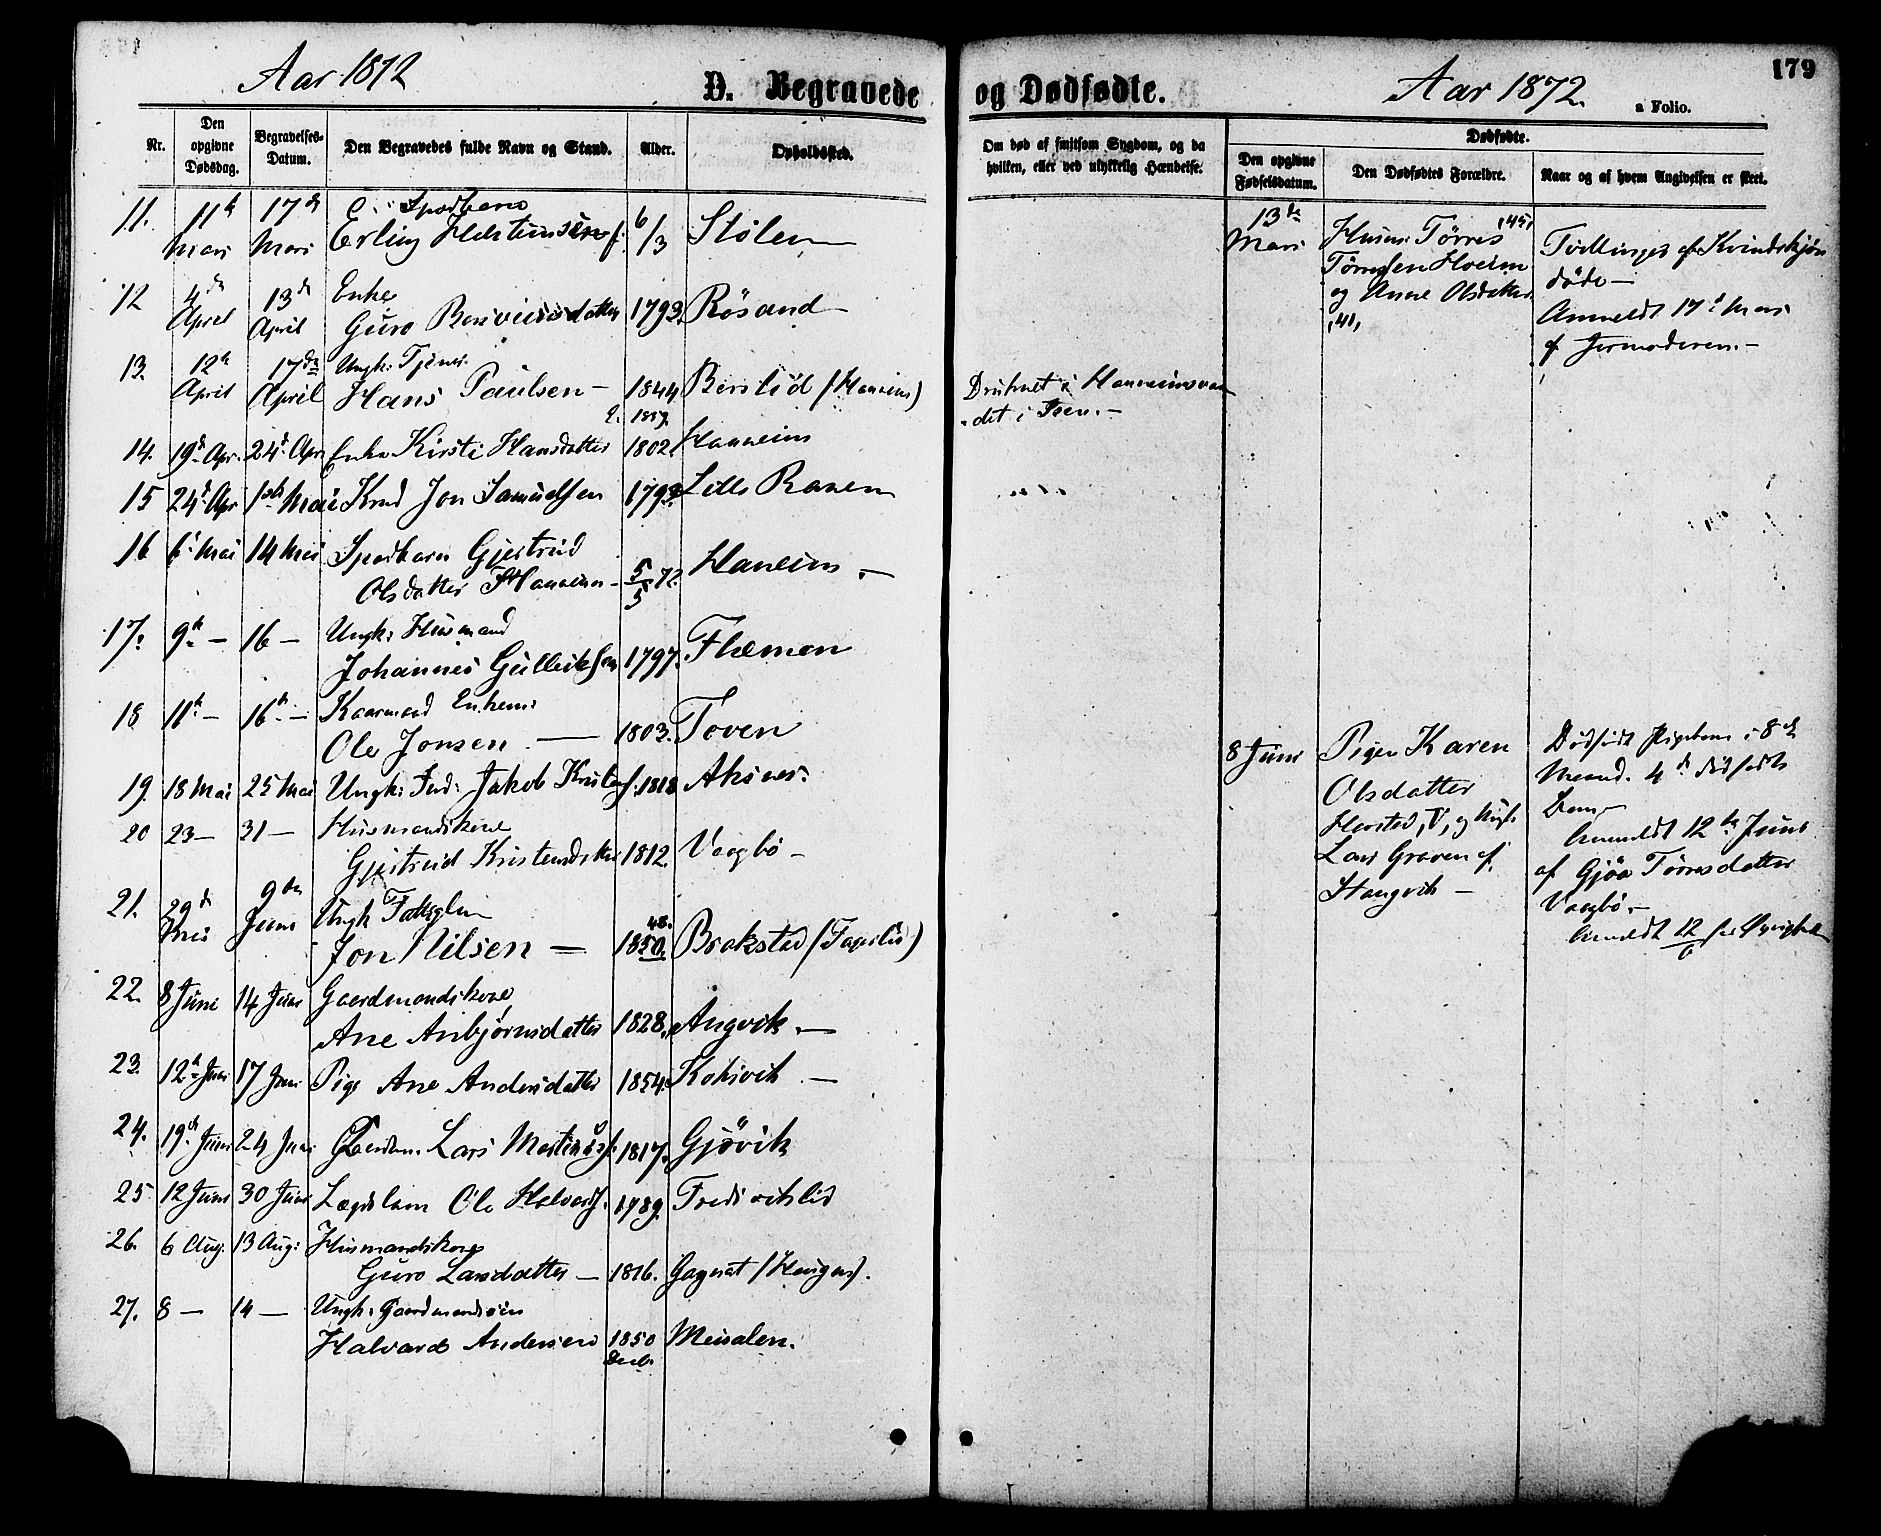 Aar 1872
D. Begravede
Nr.
Den opgivne Dødsdag.
Begravelses-Datum.
Den Begravedes fulde Navn og Stand.
Alder.
Opholdssted.
11. 11te Mars 17de Mars Spædbarn
Erling 6/3 Stølen
12 4de April 13de April Enke
Guro 1793. Rösand
13. 12te April 17de April Ungk: Tjener
Hans Paulsen 1844 Berslid (Haneim)
14. 19de Apr. 24de Apr Enke Kirsti Hansdatter 1802 Hanneim
15 24de Apr 1ste Mai Jon Samuelsen 1793. Lille Ranem
16 6te Mai 14 Mai Spædbarn Gjertrud
Olsdatter Hanneim 5/5 72. Haneim
17. 9de 16 Ungk: Husmand
Johannes Gulleiksen 1797. Flemen
18 11te 16de Kaarmand Enkem:
Ole Jonsen 1803. Toven
19. 18 Mai 25 Mai Ungk: Ind: Jakob 1818 Aksnes.
20 23 31 Husmandskone
Gjertrud 1812. Vaagbö
21. 29de Mai 9de Juni Ungk
Jon Nilsen 1850. 48. Brakstad (Fagerlid)
22. 8 Juni 14 Juni Gaardmandskone
Ane Anbjørnsdatter 1828. Angvik.
23. 12te Juni 17 Juni Pige Ane Andersdatter 1854. Koksvik
24. 19de Juni 24 Juni Gaardm. Lars 1817. Gjövik
25 12 Juni 30 Juni Lægdslem Ole Halvards. 1789. Fredsvikslid
26. 6 Aug. 13 Aug: Husmandskone
Guro Larsdatter 1816. Gagnat (Haugen).
27. 8 14 Ungk. Gaardmandssön
Halvard Andersen 1850 Meisalen.
179
og Dødfødte.
Aar 1872.
a Folio.
Om død af smitsom Sygdom, og da
hvilken, eller ved ulykkelig Hændelse.
Dødfødte.
Den opgivne Fødselsdatum.
Den Dødfødtes Forældre.
Naar og af hvem Angivelsen er skeet.
13de Mars
Husm: Törres (45)
Törresen Hoeim
og Anne Olsdatter
(41)
Tvillinger af Kvindekjön
döde
Anmeldt 17de Mars
af Jormoderen.
Druknet i Hanneimsvan
det i Isen.
8 Juni
Pigen Karen
Olsdatter
Harstad, V, og Ungk:
Lars Graven af
Stangvik
Dödfödt Pigebarn i 8de
Maaned. 4de dödfödte
Barn
Anmeldt 12te Juni
af Gjöa Törresdatter
Vaagbö.
Anmeldt 12/6